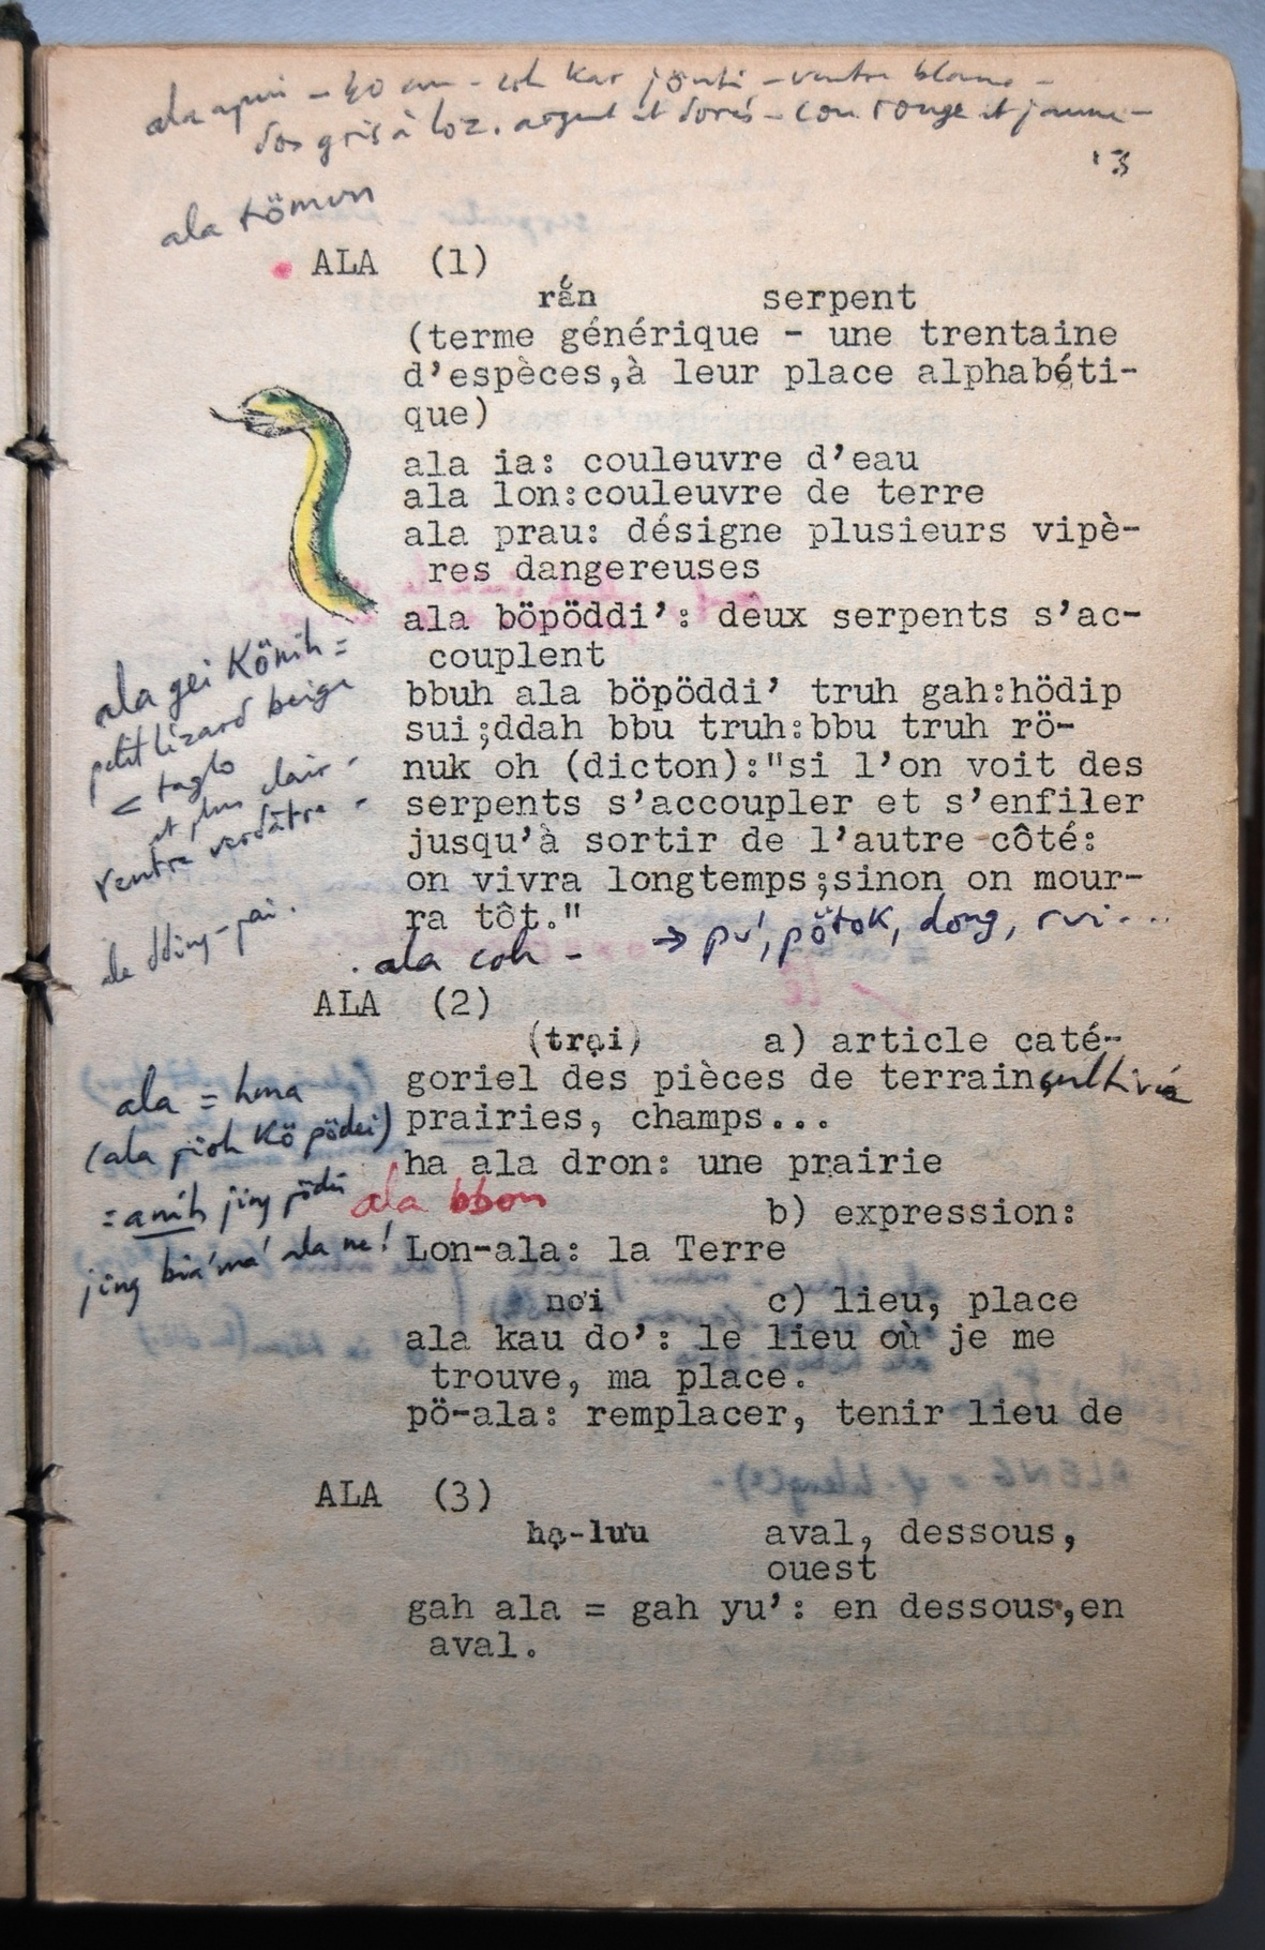 ala apui - 40 cm - coh kar jönti - ventre blanc -
dos gris à loz. argent et dorés - cou rouge et jaune -
13
ala tömun
ALA (1)
rắn serpent
(terme générique - une trentaine
d'espèces,à leur place alphabéti-
que)
ala ia: couleuvre d'eau
ala lon:couleuvre de terre
ala prau: désigne plusieurs vipè-
res dangereuses
ala böpöddi': deux serpents s'ac-
couplent
bbuh ala böpöddi' truh gah:hödip
sui;ddah bbu truh:bbu truh rö-
nuk oh (dicton):"si l'on voit des
serpents s'accoupler et s'enfiler
jusqu'à sortir de l'autre côté:
on vivra longtemps;sinon on mour-
ra tôt."
→ pu', pötok, dong, rui...
. ala coh -
ala gei könih =
petit lézard beige
< taglo
et plus clair -
ventre verdâtre -
ala dding-pai.
ALA (2)
(trại) a) article caté-
goriel des pièces de terrain cultivé
prairies, champs...
ha ala dron: une prairie
ala bbon
b) expression:
Lon-ala: la Terre
nơi c) lieu, place
ala kau do': le lieu où je me
trouve, ma place.
pö-ala: remplacer, tenir lieu de
ala = hma
(ala pioh kö pödei)
= anih jing pödei
jing bia' ma' ala ne!
ALA (3)
hạ-lưu aval, dessous,
ouest
gah ala = gah yu': en dessous,en
aval.